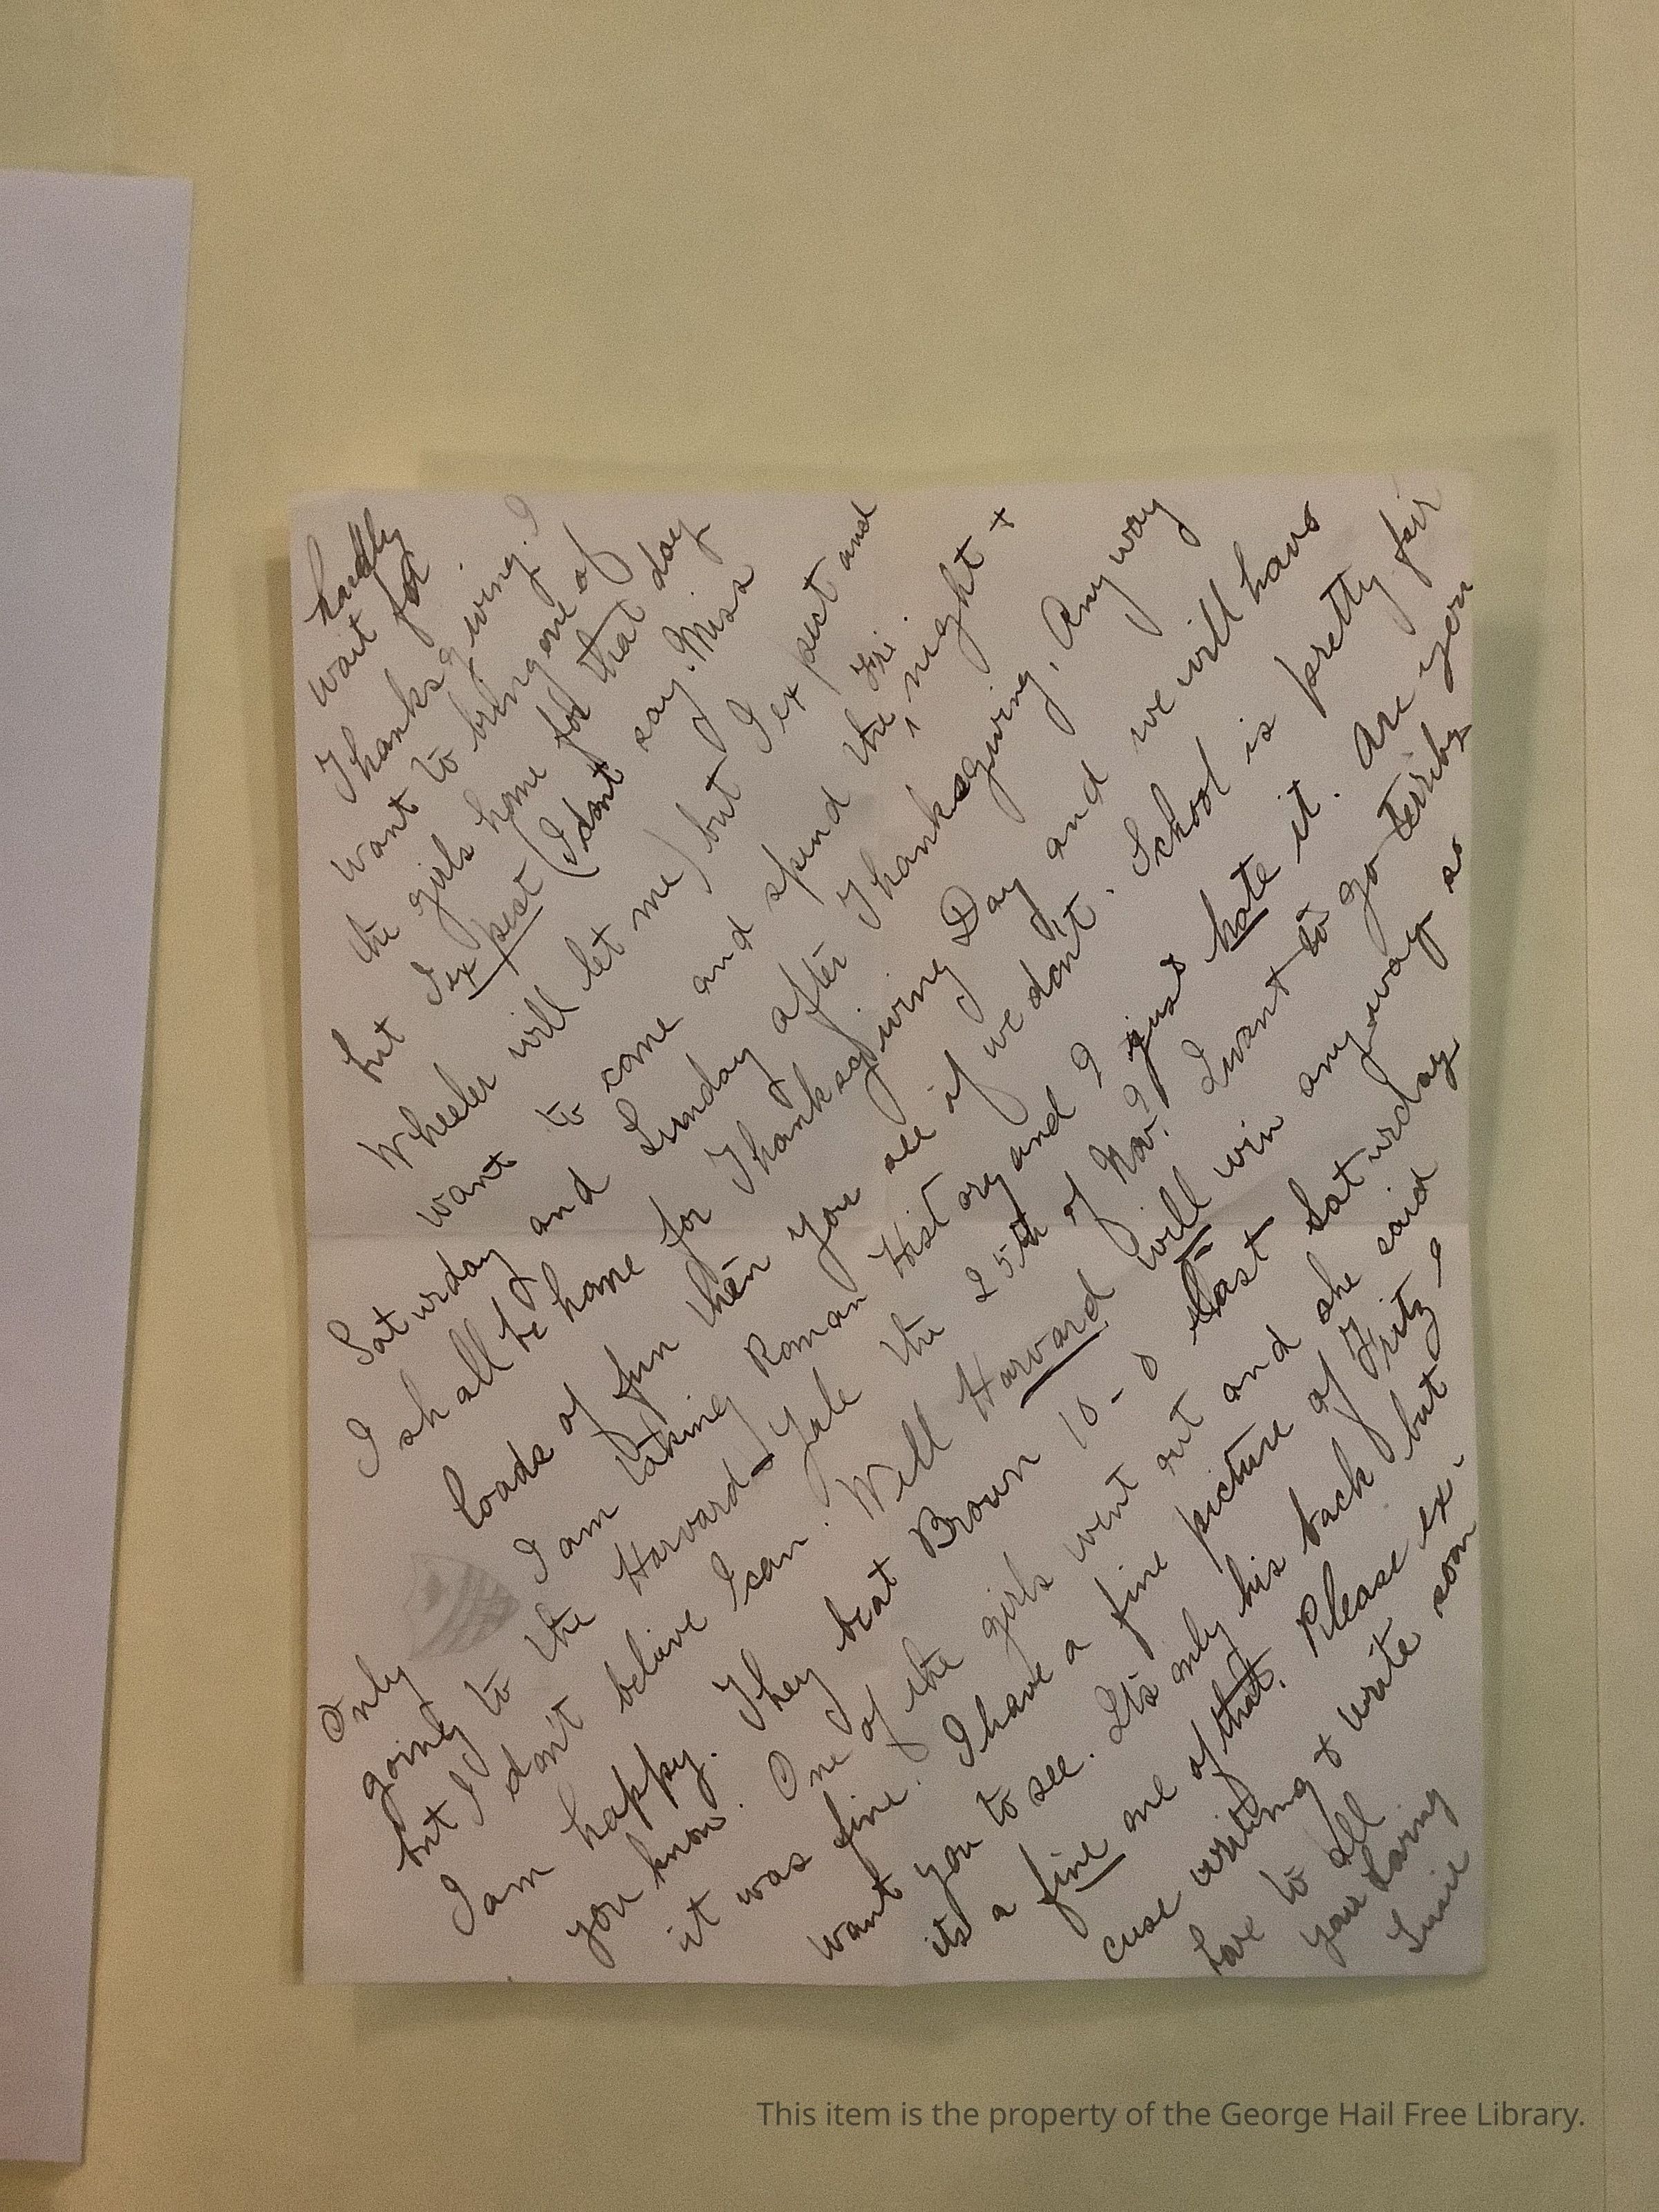 hardly
wait for
Thanksgiving. I
want to bring one of
the girls home for that day
but I expect (I don't say Miss
Wheeler will let me) but I expect and
want to come and spend the Fri. night +
Saturday and Sunday after Thanksgiving. Any way
I shall be home for Thanksgiving Day and we will have
loads of fun then you see if we don't. School is pretty fair
I am taking Roman History and I just hate it. Are you
Only
going to the Harvard-Yale the 25th of Nov.? I want to go terribly
but I don't believe I can. Well Harvard will win any way so
I am happy. They beat Brown 10-0 last Saturday
you know. One of the girls went out and she said
it was fine. I have a fine picture of Fritz I
want you to see. It's only his back but
its a fine one of that. Please ex-
cuse writing + write soon
Love to all
your loving
Susie
This item is the property of the George Hail Free Library.